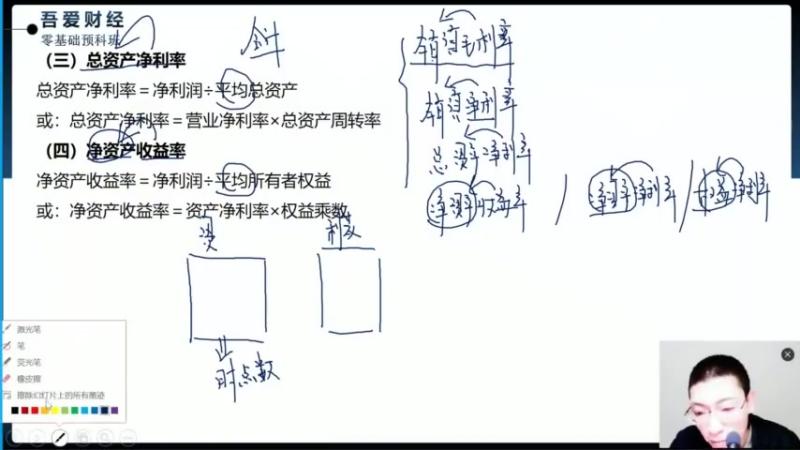 吾爱财经
零基础预科班
（三）总资产净利率
总资产净利率＝净利润÷平均总资产
或：总资产净利率＝营业净利率×总资产周转率
（四）净资产收益率
净资产收益率＝净利润÷平均所有者权益
或：净资产收益率＝资产净利率×权益乘数
毛利率
净利率
总资产净利率
净资产收益率 / 净资产净利率 / 权益净利率
资
利
时点数
激光笔
笔
荧光笔
橡皮擦
擦除幻灯片上的所有墨迹